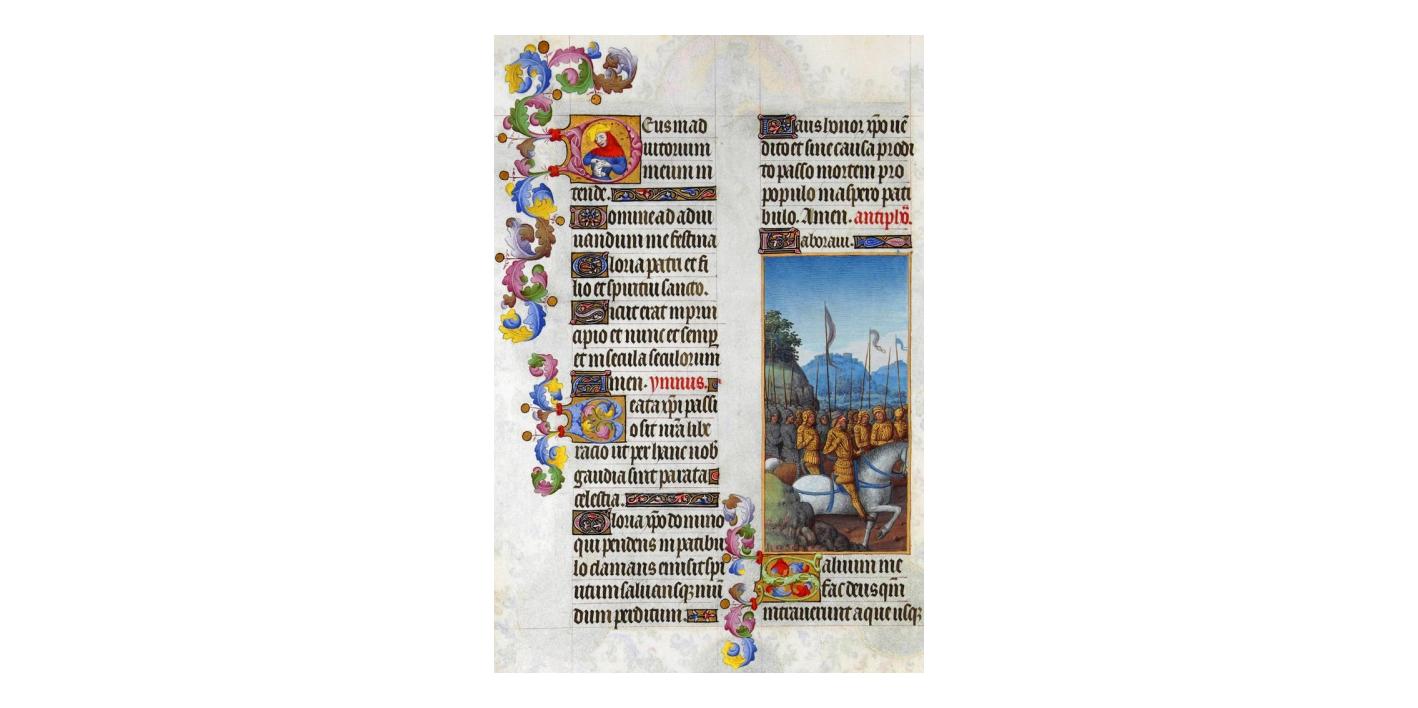 Deus in ad
iutorium
meum in
tende.
Domine ad adiu
uandum me festina
Gloria patri et fi
lio et spiritui sancto.
Sicut erat in prin
cipio et nunc et semp
et in secula seculorum
Amen. ymnus.
Beata xpi passi
o sit nra libe
racio ut per hanc nob
gaudia sint parata
celestia.
Gloria xpo domino
qui pendens in patibu
lo clamans emisit spi
ritum saluansq mu
dum perditum.
Laus honor xpo ue
dito et sine causa prodi
to passo mortem pro
populo in aspero pati
bulo. Amen. antipho.
Laboraui.
Saluum me
fac deus qm
intrauerunt aque usq